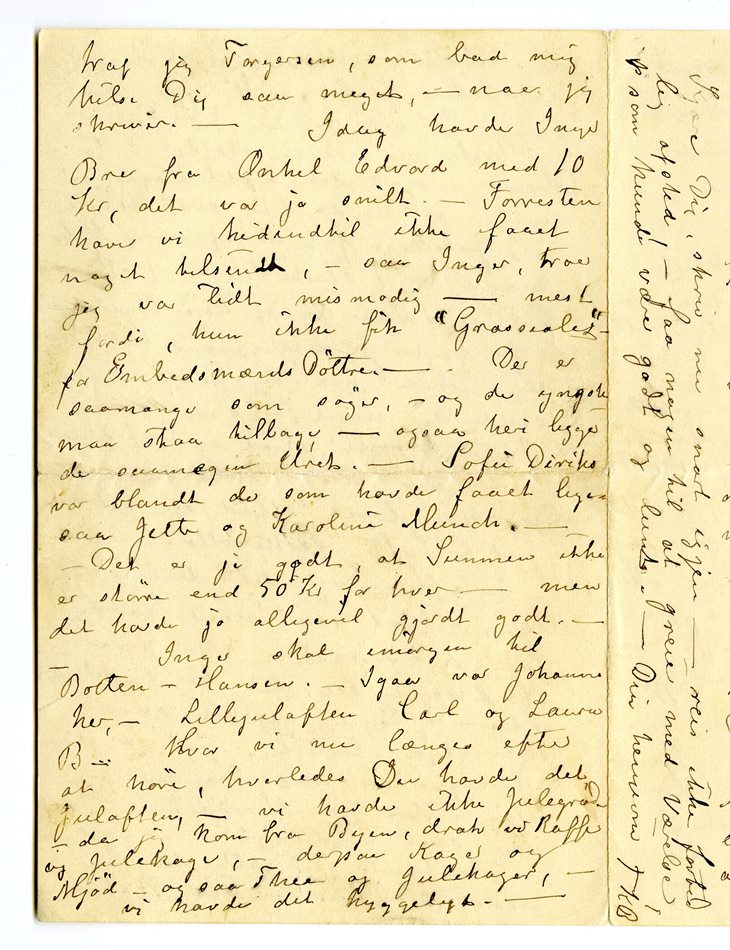 traf jeg Torgersen, som bad mig
hilse Dig saa meget, — naar jeg
skriver. — Idag havde Inger
Brev fra Onkel Edvard med 10
Kr, det var jo snilt. — Forresten
have vi hidindtil ikke faaet
noget tilsendt, — saa Inger, troer
jeg var lidt mismodig — mest
fordi, hun ikke fik "Grosserleg"—
for Embedsmænds Döttre. — Der er
saamange som söger, — og de yngste
maa staa tilbage, — ogsaa heri ligger
de saamegen Uret. — Sofie Diriks
var blandt de som havde faaet lige-
saa Jette og Karoline Munch. —
— Det er jo godt, at Summen ikke
er större end 50 Kr for hver — men
det havde jo alligevel gjordt godt. —
— Inger skal imorgen til
Botten-Hansen. — Igaar var Johanne
her, — Lillejulaften Carl og Laura
B— Hvor vi nu længes efter
at höre, hvorledes Du havde det
Julaften, — vi havde ikke Julegröd
— da jeg kom fra Byen, drak vi Kaffe
og Julekage, — derpaa Kager og
Mjöd — og saa Thee og Julekager, —
vi havde det hyggeligt. —
Kjære Dig, skriv nu snart igjen — reis ikke forted
lig afsted! — faa nogen til at greie med Værelse
som kunde være godt og lunt. — Din hengivne KB